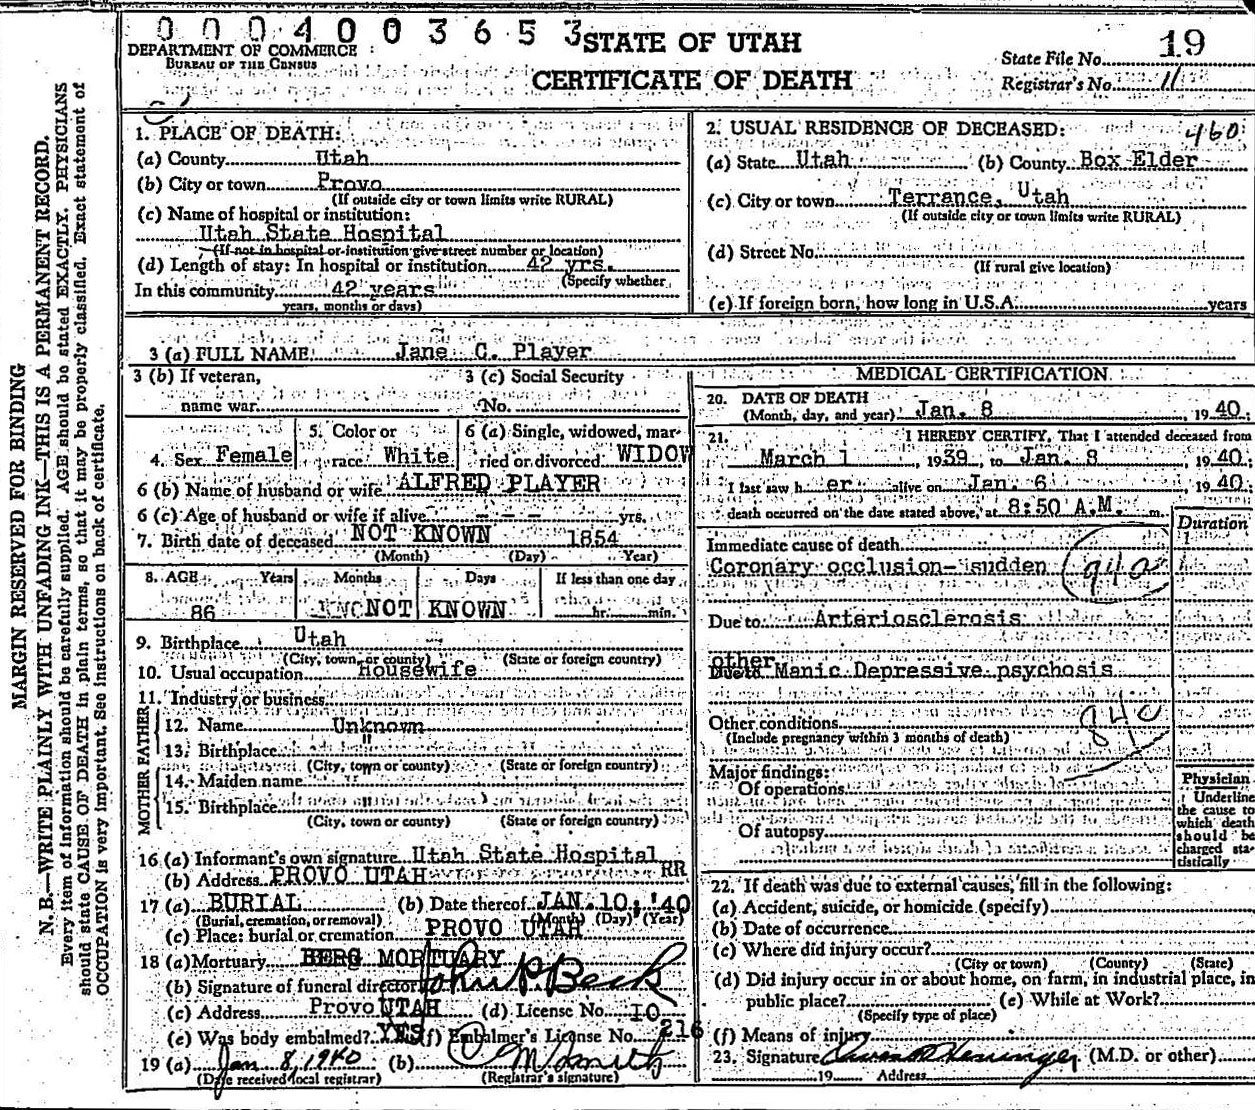 0 0 0 4 0 0 3 6 5 3
STATE OF UTAH
CERTIFICATE OF DEATH
DEPARTMENT OF COMMERCE
BUREAU OF THE CENSUS
State File No. 19
Registrar's No. 11
MARGIN RESERVED FOR BINDING
N. B.—WRITE PLAINLY WITH UNFADING INK—THIS IS A PERMANENT RECORD.
Every item of information should be carefully supplied. AGE should be stated EXACTLY. PHYSICIANS
should state CAUSE OF DEATH in plain terms, so that it may be properly classified. Exact statement of
OCCUPATION is very important. See instructions on back of certificate.
1. PLACE OF DEATH:
(a) County Utah
(b) City or town Provo
(If outside city or town limits write RURAL)
(c) Name of hospital or institution:
Utah State Hospital
(If not in hospital or institution give street number or location)
(d) Length of stay: In hospital or institution 42 yrs.
(Specify whether
In this community 42 years
years, months or days)
2. USUAL RESIDENCE OF DECEASED: 460
(a) State Utah (b) County Box Elder
(c) City or town Terrance, Utah
(If outside city or town limits write RURAL)
(d) Street No.
(If rural give location)
(e) If foreign born, how long in U.S.A. years
3 (a) FULL NAME Jane C. Player
3 (b) If veteran,
name war
3 (c) Social Security
No.
4. Sex Female
5. Color or
race White
6 (a) Single, widowed, mar-
ried or divorced WIDOW
6 (b) Name of husband or wife ALFRED PLAYER
6 (c) Age of husband or wife if alive — — — yrs.
7. Birth date of deceased NOT KNOWN 1854
(Month) (Day) Year)
8. AGE Years Months Days If less than one day
86 NOT KNOWN hr. min.
9. Birthplace Utah
(City, town, or county) (State or foreign country)
10. Usual occupation Housewife
11. Industry or business
FATHER
12. Name Unknown
13. Birthplace "
(City, town or county) (State or foreign country)
MOTHER
14. Maiden name
15. Birthplace
(City, town or county) (State or foreign country)
16 (a) Informant's own signature Utah State Hospital
(b) Address PROVO UTAH RR
17 (a) BURIAL (b) Date thereof JAN. 10, '40
(Burial, cremation, or removal) (Month) (Day) (Year)
(c) Place: burial or cremation PROVO UTAH
18 (a) Mortuary BERG MORTUARY
(b) Signature of funeral director John P Beck
(c) Address Provo UTAH (d) License No. 10
(e) Was body embalmed? YES (f) Embalmer's License No. 216
19 (a) Jan 8, 1940 (b)
(Date received local registrar) (Registrar's signature)
MEDICAL CERTIFICATION
20. DATE OF DEATH
(Month, day, and year) Jan. 8, 1940.
21. I HEREBY CERTIFY, That I attended deceased from
March 1, 1939, to Jan. 8, 1940.
I last saw her alive on Jan. 6, 1940.
death occurred on the date stated above, at 8:50 A.M. m.
Duration
Immediate cause of death
Coronary occlusion- sudden 94a
Due to Arteriosclerosis
other
Due to Manic Depressive psychosis
Other conditions 84c
(Include pregnancy within 3 months of death)
Major findings:
Of operations
Of autopsy
Physician
Underline
the cause to
which death
should be
charged sta-
tistically
22. If death was due to external causes, fill in the following:
(a) Accident, suicide, or homicide (specify)
(b) Date of occurrence
(c) Where did injury occur?
(City or town) (County) (State)
(d) Did injury occur in or about home, on farm, in industrial place, in
public place? (e) While at Work?
(Specify type of place)
(f) Means of injury
23. Signature Heninger (M.D. or other)
19 Address